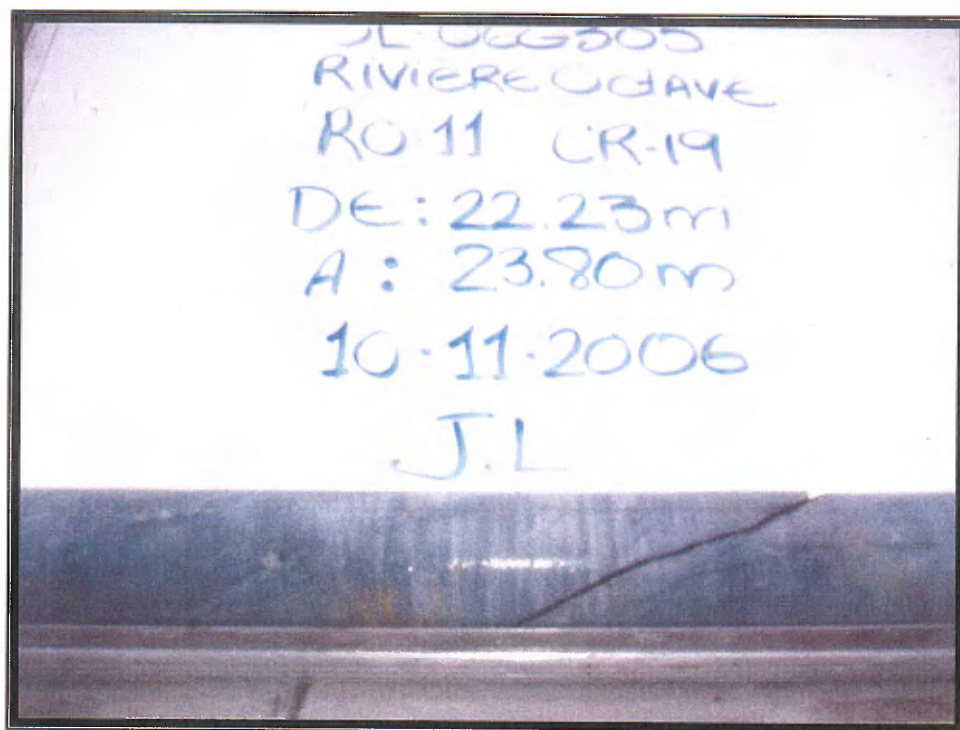 RIVIERE OCTAVE
RO-11 CR-19
DE: 22.23m
A: 23.80m
10-11-2006
J.L